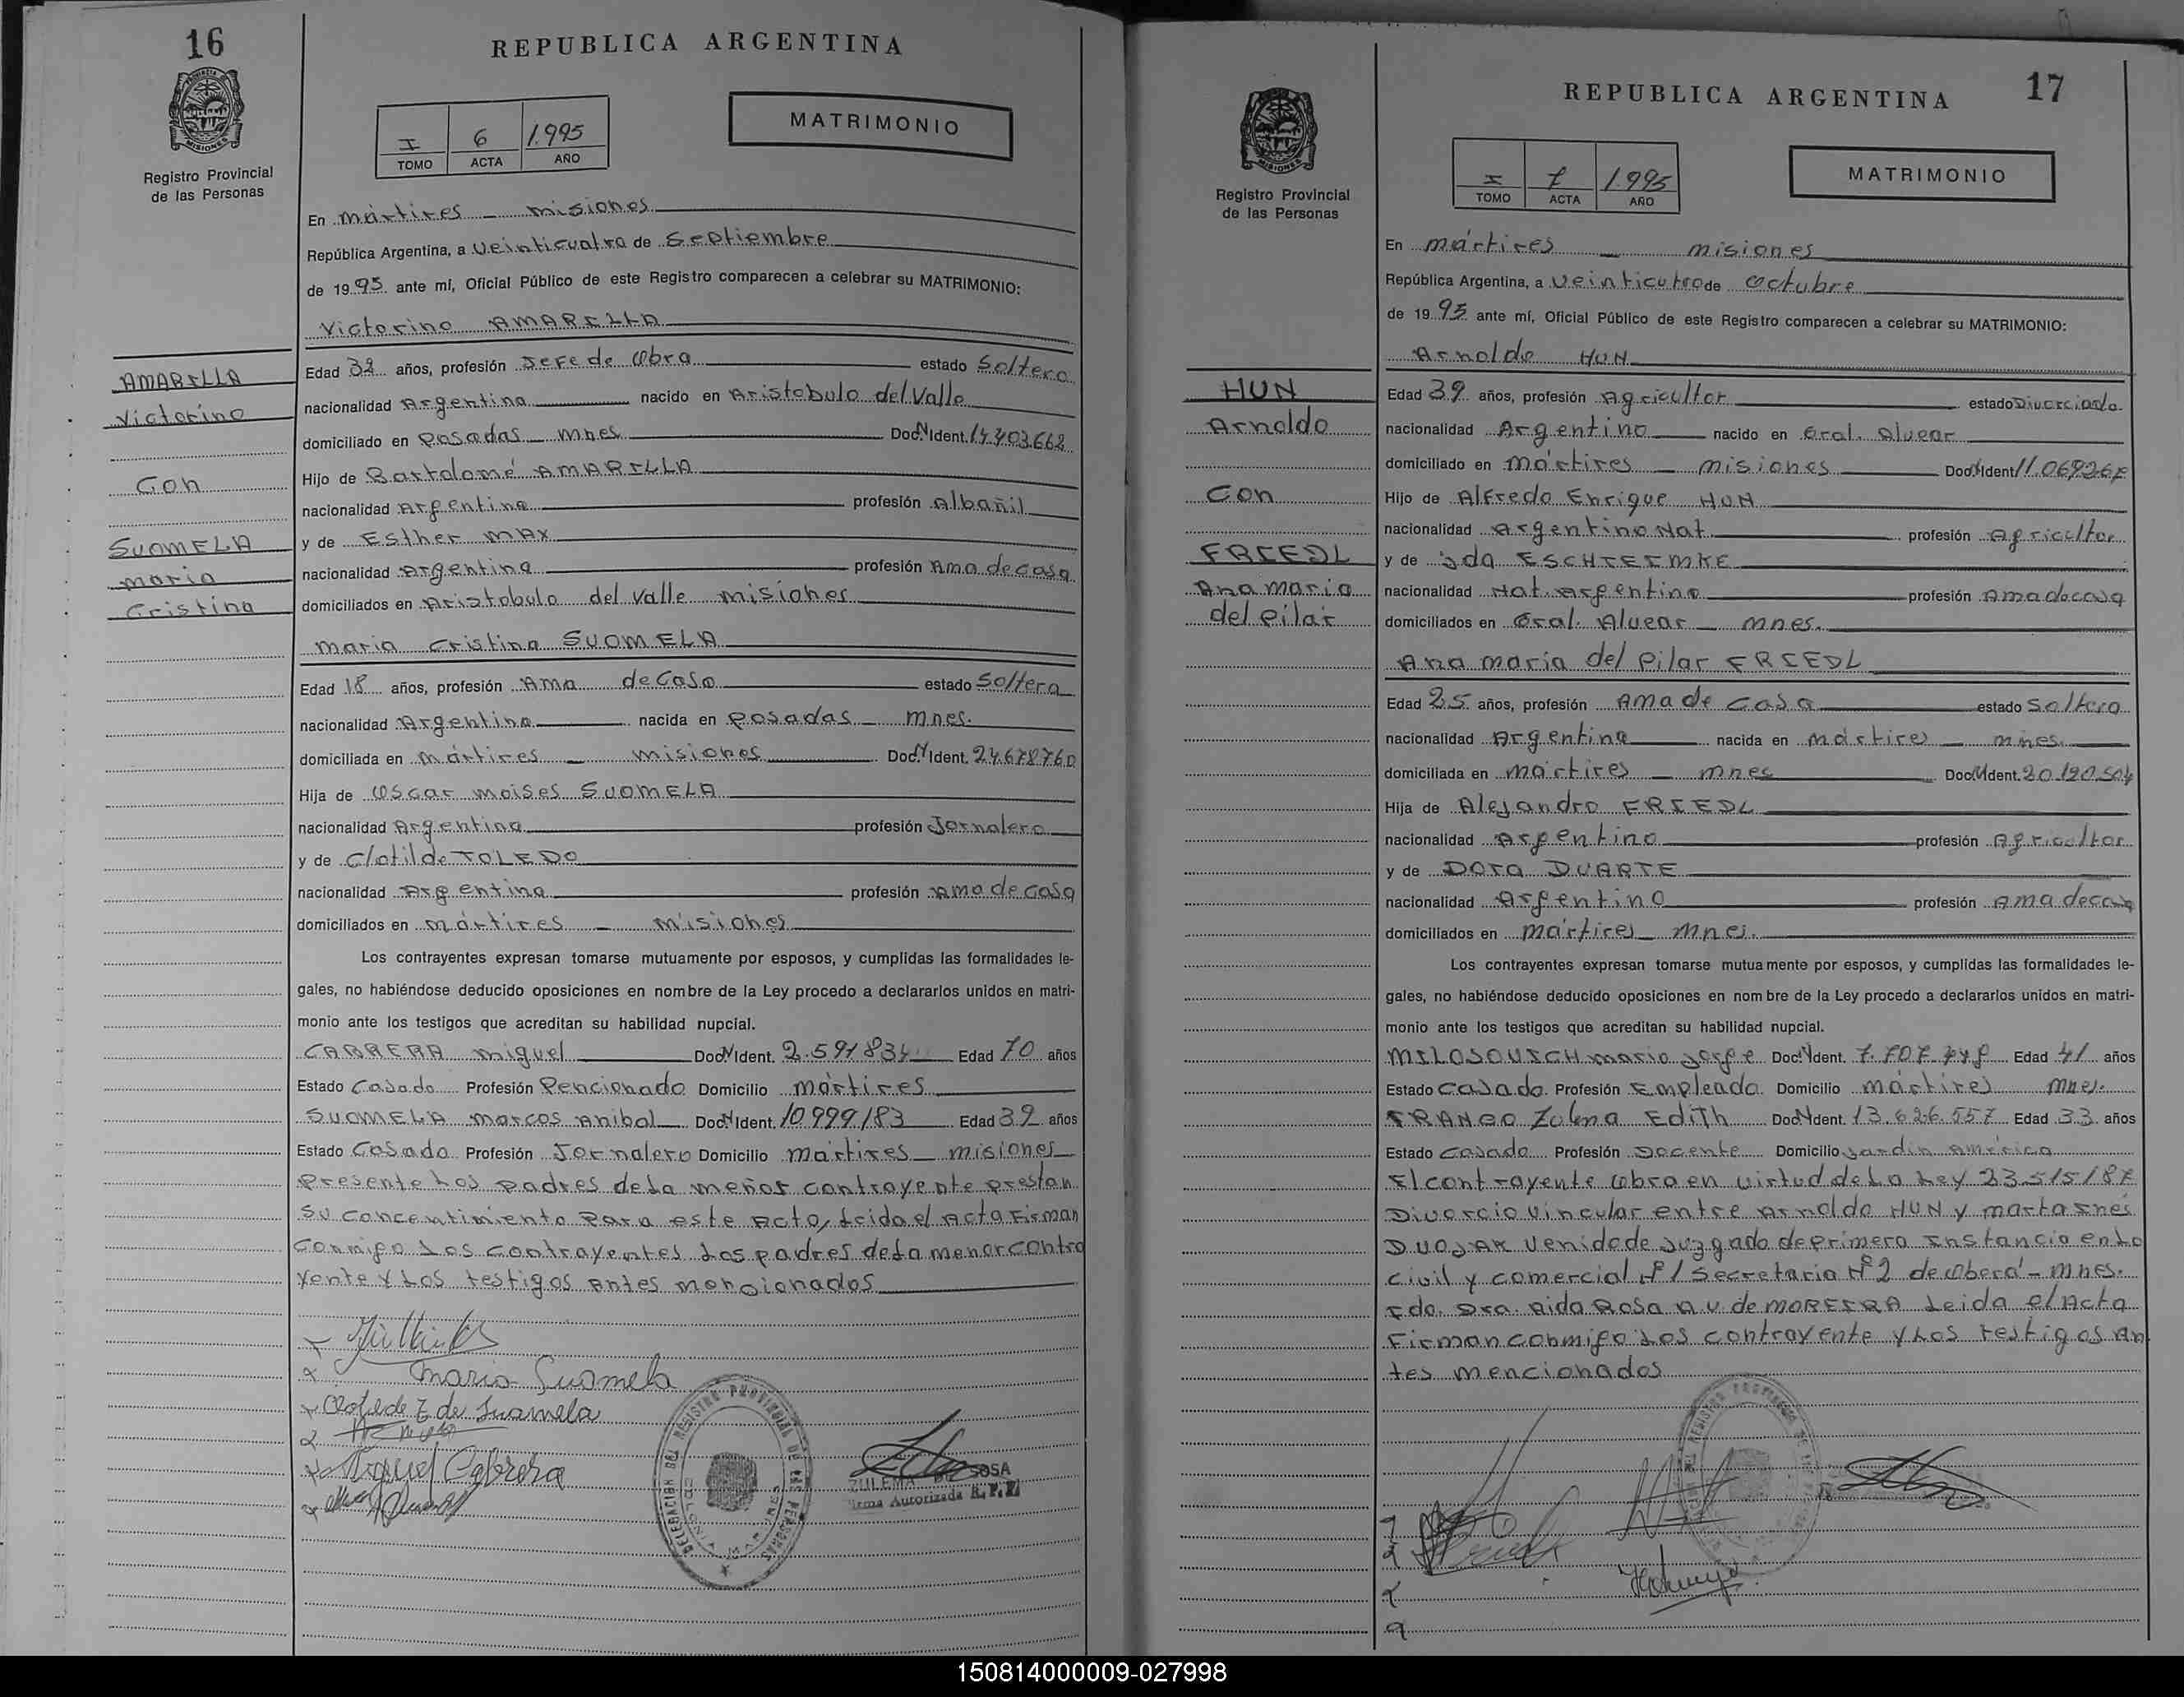 16
REPUBLICA ARGENTINA
MISIONES
Registro Provincial
de las Personas
I 6 1.995
TOMO ACTA AÑO
MATRIMONIO
En mártires - misiones
República Argentina, a veinticuatro de Septiembre
de 1995 ante mí, Oficial Público de este Registro comparecen a celebrar su MATRIMONIO:
Victorino AMARILLA
Edad 32 años, profesión Jefe de Obra estado Soltero
nacionalidad Argentina nacido en Aristobulo del Valle
domiciliado en Posadas - mnes Doc.N Ident. 14.403.662
Hijo de Bartolomé AMARILLA
nacionalidad Argentina profesión Albañil
y de Esther MAX
nacionalidad Argentina profesión Ama de casa
domiciliados en Aristobulo del Valle misiones
Maria Cristina SUOMELA
Edad 18 años, profesión Ama de Casa estado Soltera
nacionalidad Argentina nacida en Posadas - mnes.
domiciliada en mártires - misiones Doc.N Ident. 24.678760
Hija de Oscar Moises SUOMELA
nacionalidad Argentina profesión Jornalero
y de Clotilde TOLEDO
nacionalidad Argentina profesión Ama de casa
domiciliados en mártires - misiones
Los contrayentes expresan tomarse mutuamente por esposos, y cumplidas las formalidades le-
gales, no habiéndose deducido oposiciones en nombre de la Ley procedo a declararlos unidos en matri-
monio ante los testigos que acreditan su habilidad nupcial.
CABRERA Miguel Doc.N Ident. 2.591834 Edad 70 años
Estado Casado Profesión Pencionado Domicilio mártires
SUOMELA Marcos Anibal Doc.N Ident. 10.999183 Edad 39 años
Estado Casado Profesión Jornalero Domicilio mártires - misiones
Presente Los padres de la menor contrayente prestan
su concentimiento Para este Acto, Leida el Acta Firman
Conmigo Los contrayentes Los padres de la menor contra
yente y Los testigos Antes mencionados
AMARILLA
Victorino
Con
SUOMELA
Maria
Cristina
Maria Suomela
Clotilde T de Suomela
Miguel Cabrera
DELEGACION DEL REGISTRO PROVINCIAL DE LAS PERSONAS
ZULEMA SOSA
Firma Autorizada R.P.P.
17
REPUBLICA ARGENTINA
MISIONES
Registro Provincial
de las Personas
I 7 1.995
TOMO ACTA AÑO
MATRIMONIO
En mártires - misiones
República Argentina, a veinticutro de Octubre
de 1995 ante mí, Oficial Público de este Registro comparecen a celebrar su MATRIMONIO:
Arnoldo HUN
Edad 39 años, profesión Agricultor estado Divorciado
nacionalidad Argentino nacido en Gral. Alvear
domiciliado en mártires - misiones Doc.N Ident.
Hijo de Alfredo Enrique HUN
nacionalidad Argentino Nat profesión Agricultor
y de Ida ESCHTEIMKE
nacionalidad Nat. Argentino profesión Ama de casa
domiciliados en Gral. Alvear - mnes.
Ana maría del Pilar FRIEDL
Edad 25 años, profesión Ama de Casa estado Soltera
nacionalidad Argentina nacida en mártires - mnes.
domiciliada en mártires - mnes Doc.N Ident. 20.120.504
Hija de Alejandro FRIEDL
nacionalidad Argentino profesión Agricultor
y de Dora DUARTE
nacionalidad Argentino profesión Ama de casa
domiciliados en mártires - mnes.
Los contrayentes expresan tomarse mutuamente por esposos, y cumplidas las formalidades le-
gales, no habiéndose deducido oposiciones en nombre de la Ley procedo a declararlos unidos en matri-
monio ante los testigos que acreditan su habilidad nupcial.
MILOSOUICH mario Jorge Doc.N Ident. Edad 41 años
Estado Casado Profesión Empleado Domicilio mártires mnes.
FRANCO Zulma Edith Doc.N Ident. 13.626.557 Edad 33 años
Estado Casado Profesión Docente Domicilio Jardin América
El contrayente Obra en virtud de La Ley 23515/87
Divorcio vincular entre Arnoldo HUN y marta Inés
DUOJAK venido de Juzgado de primera Instancia en Lo
Civil y Comercial Nº1 Secretaria Nº2 de Oberá - mnes.
Fdo. Dra. Aida Rosa A V. de MOREIRA Leida el Acta
Firman conmigo Los contrayente y Los testigos An
tes mencionados
HUN
Arnoldo
Con
FRIEDL
Ana maria
del Pilar
150814000009-027998